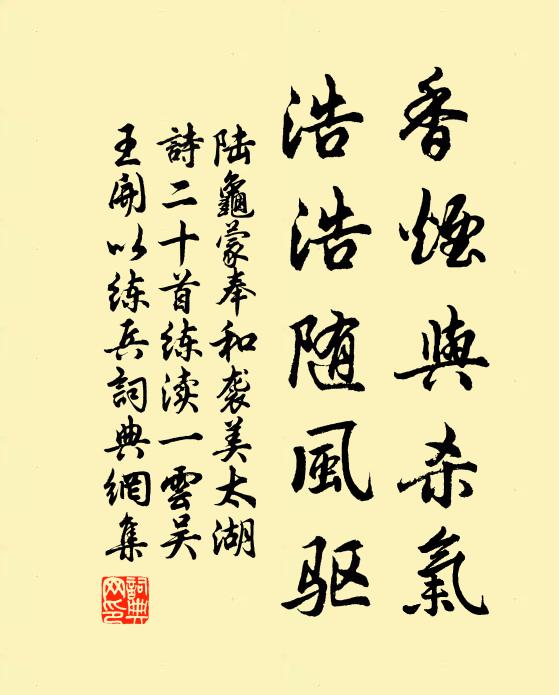 香煙與杀氣
浩浩随風驱
陆龜蒙奉和袭美太湖
詩二十首练渎一雲吴
王開以练兵詞典網集
詞典